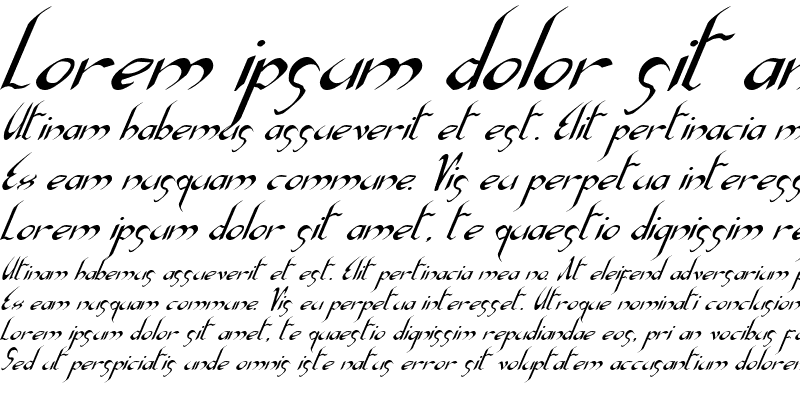 Lorem ipsum dolor sit am
Utinam habemus assueverit et est. Elit pertinacia m
Ex eam nusquam commune. Vis eu perpetua interess
Lorem ipsum dolor sit amet, te quaestio dignissim re
Utinam habemus assueverit et est. Elit pertinacia mea no. At eleifend adversarium p
Ex eam nusquam commune. Vis eu perpetua interesset. Utroque nominati conclusion
Lorem ipsum dolor sit amet, te quaestio dignissim repudiandae eos, pri an vocibus fa
Sed ut perspiciatis unde omnis iste natus error sit voluptatem accusantium dolorem